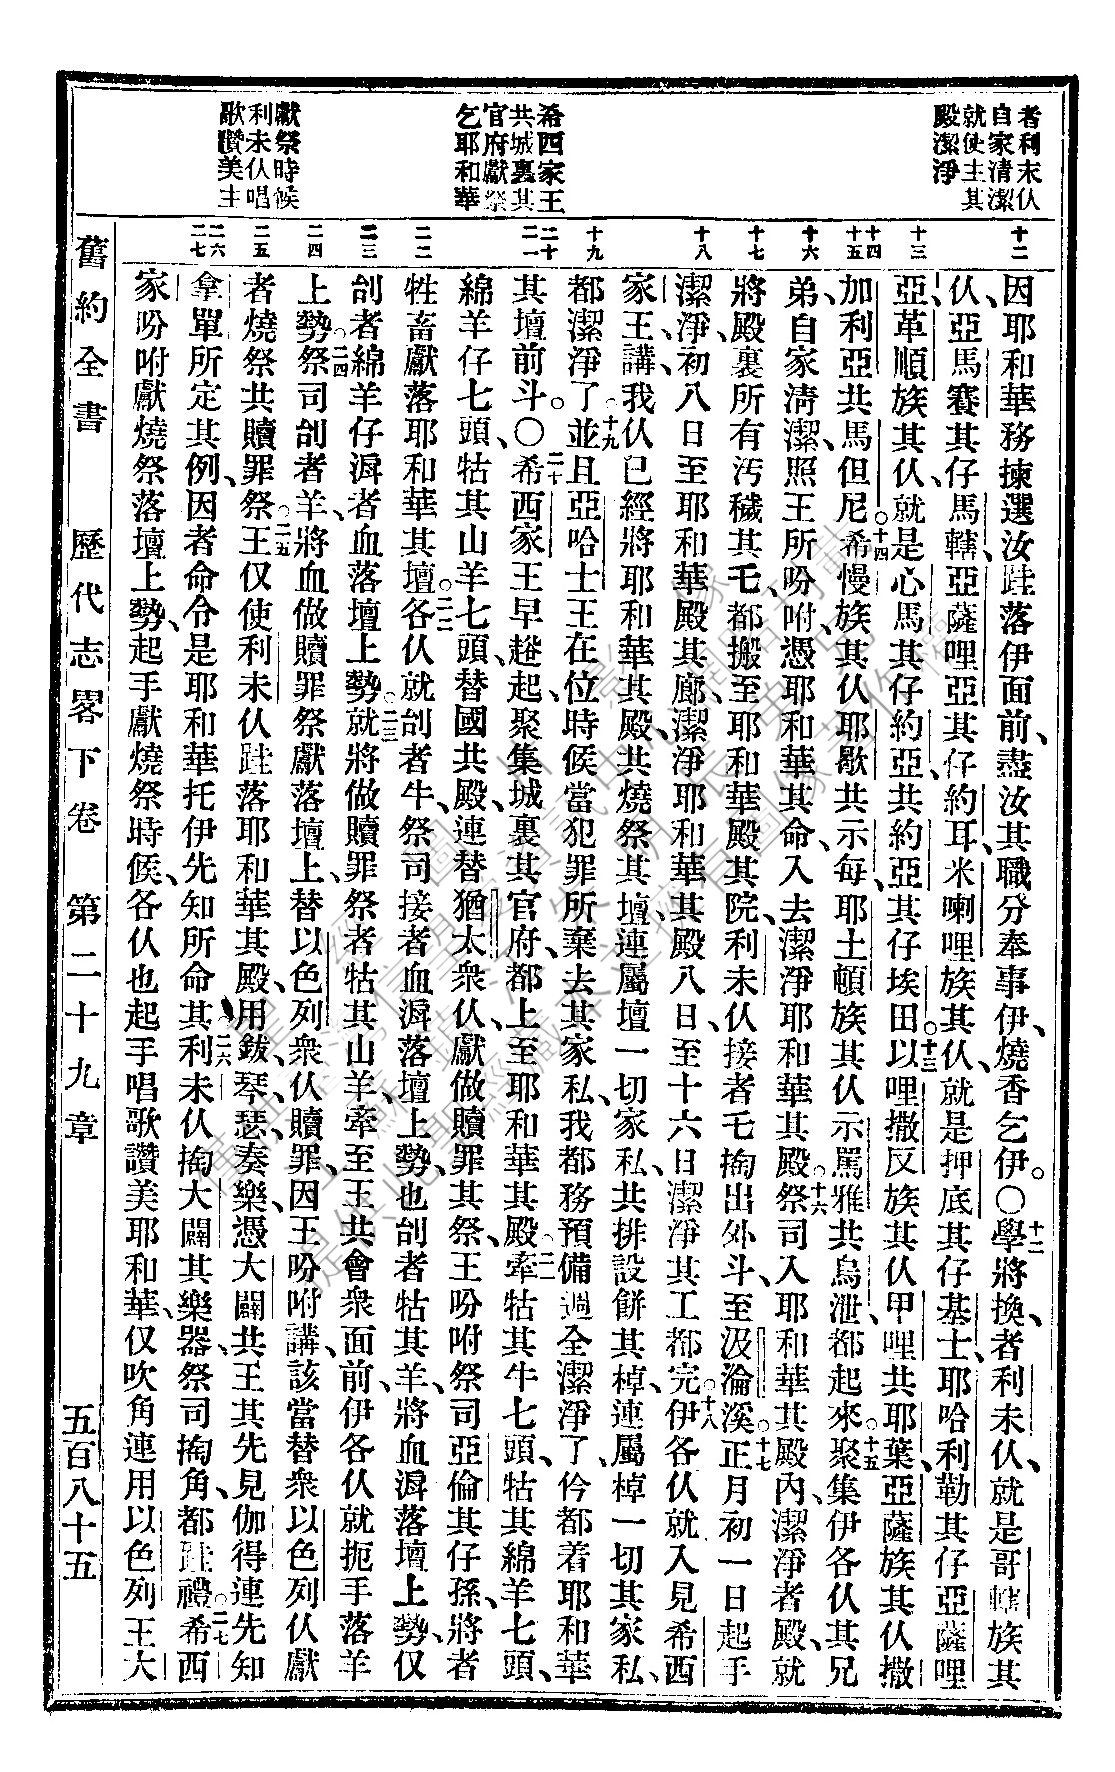 者利未仈
自家清潔
就使主其
殿潔淨
希西家王
共城裏其
官府獻祭
乞耶和華
獻祭時候
利未仈唱
歌讚美主
十二
十三
十四
十五
十六
十七
十八
十九
二十
二一
二二
二三
二四
二五
二六
二七
因耶和華務揀選汝、跬落伊面前、盡汝其職分奉事伊、燒香乞伊。〇十二學將換、者利未仈、就是哥轄族其
仈、亞馬賽其仔馬轄、亞薩哩亞其仔約耳、米喇哩族其仈、就是押底其仔基士、耶哈利勒其仔亞薩哩
亞、革順族其仈、就是心馬其仔約亞、共約亞其仔埃田。十三以哩撒反族其仈甲哩共耶葉、亞薩族其仈撒
加利亞共馬但尼。十四希慢族其仈耶歇共示每、耶土頓族其仈示罵雅共烏泄、都起來。十五聚集伊各仈其兄
弟、自家清潔、照王所吩咐、憑耶和華其命、入去潔淨耶和華其殿。十六祭司入耶和華其殿內、潔淨者殿、就
將殿裏所有污穢其乇、都搬至耶和華殿其院、利未仈接者乇掏出外斗、至汲淪溪。十七正月初一日起手
潔淨、初八日至耶和華殿其廊、潔淨耶和華其殿八日、至十六日潔淨其工都完。十八伊各仈就入見希西
家王、講、我仈已經將耶和華其殿、共燒祭其壇、連屬壇一切家私、共排設餅其棹、連屬棹一切其家私、
都潔淨了。十九並且亞哈士王在位時候、當犯罪所棄去其家私、我都務預備、週全潔淨了、仱都着耶和華
其壇前斗。〇二十希西家王早趒起、聚集城裏其官府、都上至耶和華其殿。二一牽牯其牛七頭、牯其綿羊七頭、
綿羊仔七頭、牯其山羊七頭、替國共殿、連替猶太衆仈、獻做贖罪其祭、王吩咐祭司亞倫其仔孫、將者
牲畜獻落耶和華其壇。二二各仈就刣者牛、祭司接者血漘落壇上勢、也刣者牯其羊、將血漘落壇上勢、仅
刣者綿羊仔、漘者血落壇上勢。二三就將做贖罪祭者牯其山羊、牽至王共會衆面前、伊各仈就扼手落羊
上勢。二四祭司刣者羊、將血做贖罪祭獻落壇上、替以色列衆仈贖罪、因王吩咐講、該當替衆以色列仈獻
者燒祭共贖罪祭。二五王仅使利未仈跬落耶和華其殿、用鈸、琴、瑟、奏樂、憑大闢共王其先見伽得、連先知
拿單所定其例、因者命令是耶和華托伊先知所命其。二六利未仈掏大闢其樂器、祭司掏角、都跬禮。二七希西
家吩咐獻燒祭落壇上勢、起手獻燒祭時候、各仈也起手唱歌讚美耶和華、仅吹角連用以色列王大
舊約全書　歷代志畧下卷　第二十九章　五百八十五